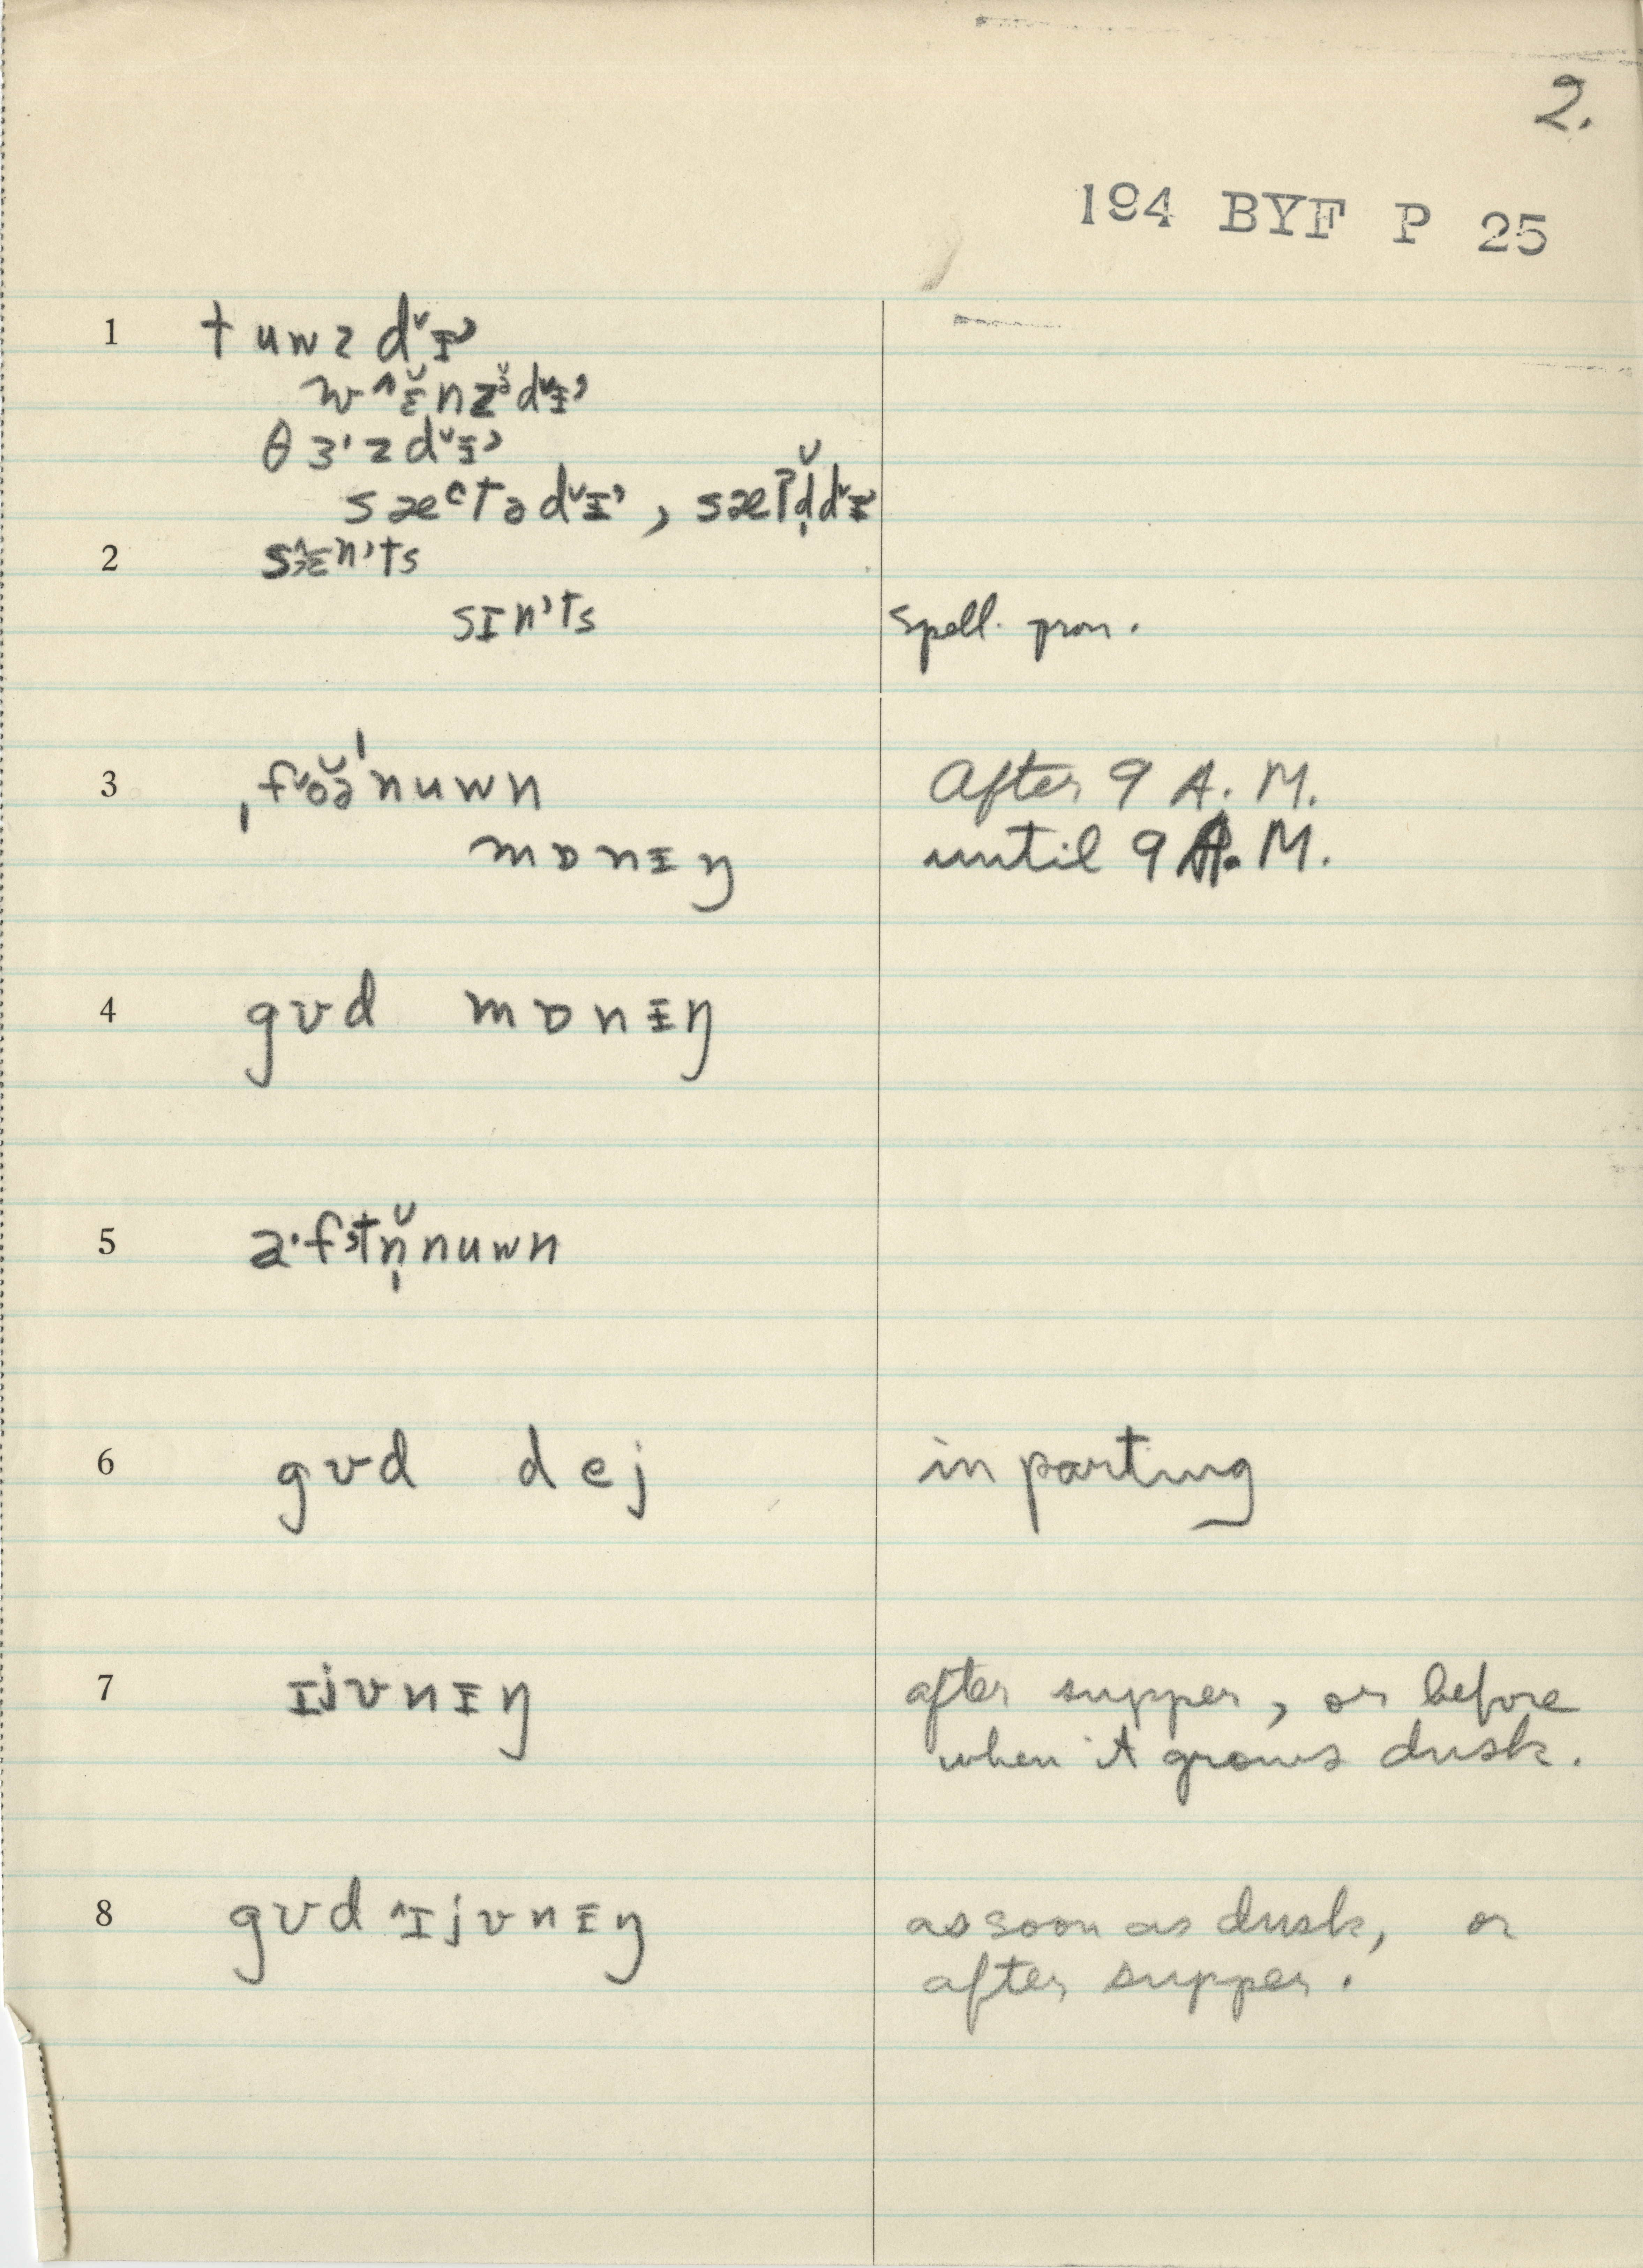 2.
194 BYF P 25
1 tuwzdᵛɪ’
wᶺɛ̆nzə̆dᵛɪ’
θɜ'zdᵛɪ’
sæᶜtədᵛɪ’, sæʔd̩̆dᵛɪ
2 sn’ts
sɪn’ts spell. pron.
3 ˌfᵛŏə̆ˈnuwn After 9 A.M.
mɒnɪŋ until 9 A.M.
4 gʊd mɒnɪŋ
5 a·fstn̩̆nuwn
6 gʊd dej in parting
7 ɪjvnɪŋ after supper, or before
when it grows dusk.
8 gʊd ᶺɪjvnɪŋ as soon as dusk, or
after supper.